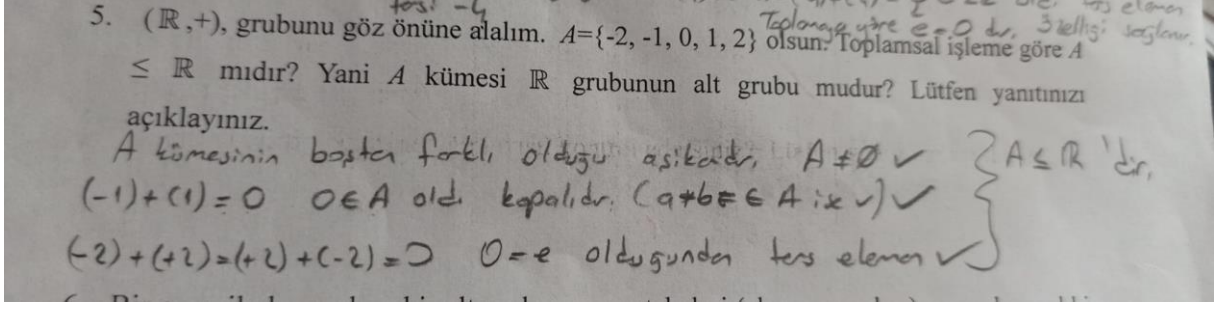 tersi -4
ters eleman
Toplamaya göre e=0 dır. 3 özelliği sağlanır.
5. (ℝ,+), grubunu göz önüne alalım. A={-2, -1, 0, 1, 2} olsun. Toplamsal işleme göre A
≤ ℝ mıdır? Yani A kümesi ℝ grubunun alt grubu mudur? Lütfen yanıtınızı
açıklayınız.
A kümesinin boştan farklı olduğu aşikardır, A≠∅ ✓ } A≤ℝ 'dir,
(-1)+(1)=0 0∈A old. kapalıdır. (a*b ∈ A ise ✓) ✓
(-2)+(+2)=(+2)+(-2)=0 0=e olduğundan ters eleman ✓